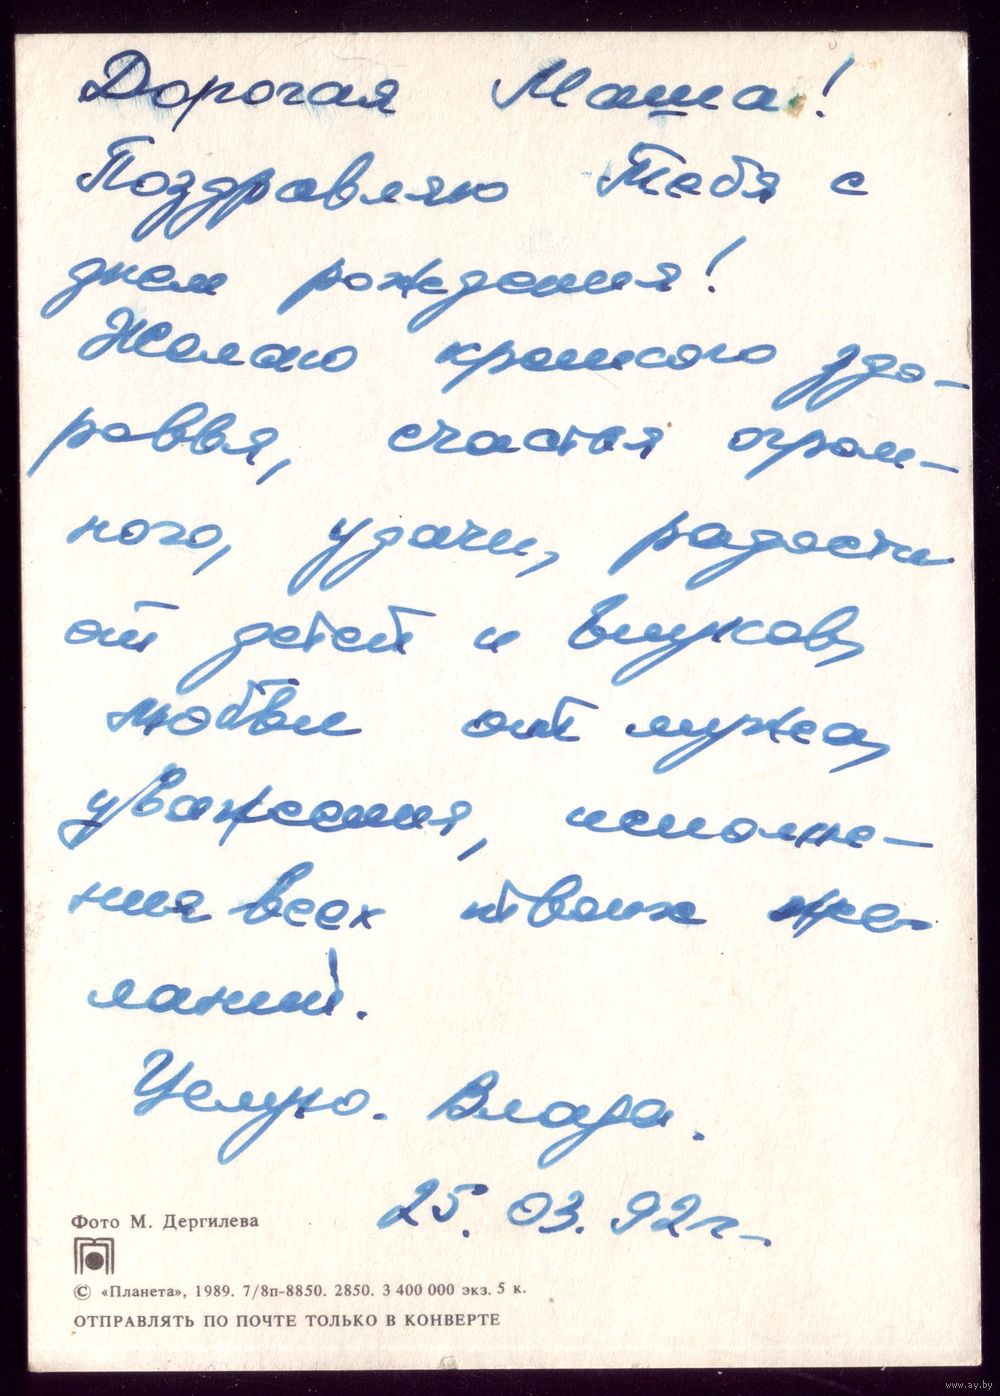 Дорогая Маша!
Поздравляю Тебя с
днем рождения!
Желаю крепкого здо-
ровья, счастья огром-
ного, удачи, радости
от детей и внуков,
любви от мужа,
уважения, исполне-
ния всех твоих же-
ланий.
Целую. Влада.
25.03.92г.
Фото М. Дергилева
© «Планета», 1989. 7/8п-8850. 2850. 3 400 000 экз. 5 к.
ОТПРАВЛЯТЬ ПО ПОЧТЕ ТОЛЬКО В КОНВЕРТЕ
www.ay.by